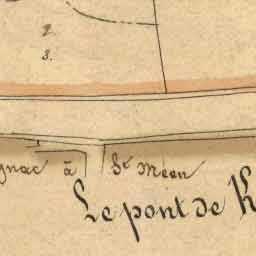 2.
3.
gnac à St Méen
Le pont de K